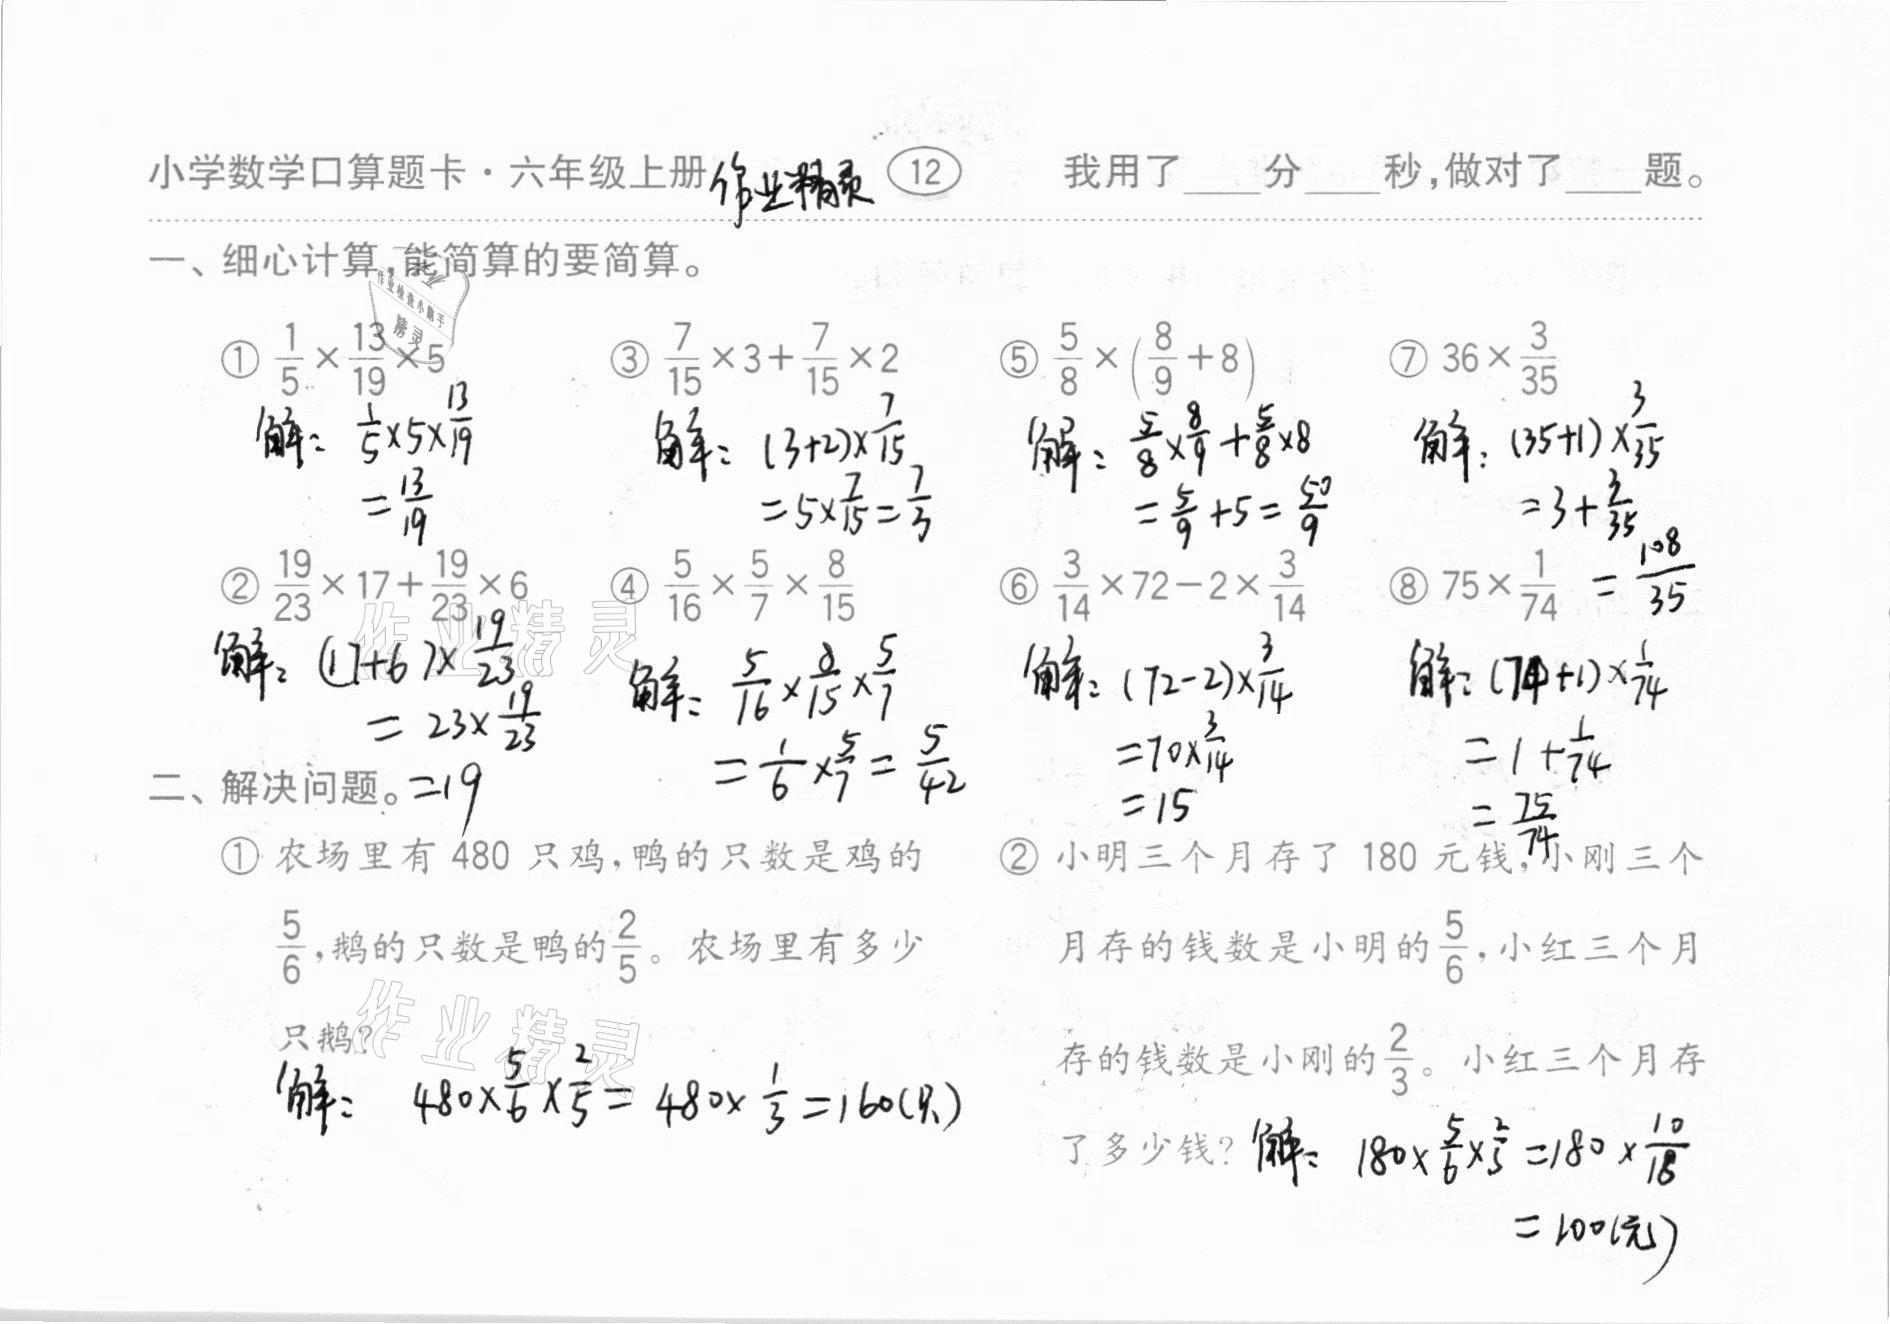 小学数学口算题卡·六年级上册 作业精灵 12 我用了____分____秒,做对了____题。
一、细心计算,能简算的要简算。
① 1/5×13/19×5
解: 1/5×5×13/19
=13/19
③ 7/15×3+7/15×2
解: (3+2)×7/15
=5×7/15=7/3
⑤ 5/8×(8/9+8)
解: 5/8×8/9+5/8×8
=5/9+5=50/9
⑦ 36×3/35
解: (35+1)×3/35
=3+3/35
=108/35
② 19/23×17+19/23×6
解: (17+6)×19/23
=23×19/23
=19
④ 5/16×5/7×8/15
解: 5/16×8/15×5/7
=1/6×5/7=5/42
⑥ 3/14×72-2×3/14
解: (72-2)×3/14
=70×3/14
=15
⑧ 75×1/74
解: (74+1)×1/74
=1+1/74
=75/74
二、解决问题。
① 农场里有 480 只鸡,鸭的只数是鸡的
5/6,鹅的只数是鸭的2/5。农场里有多少
只鹅?
解: 480×5/6×2/5=480×1/3=160(只)
② 小明三个月存了 180 元钱,小刚三个
月存的钱数是小明的5/6,小红三个月
存的钱数是小刚的2/3。小红三个月存
了多少钱? 解: 180×5/6×2/3=180×10/18
=100(元)
作业检查小助手
精灵
作业精灵
作业精灵